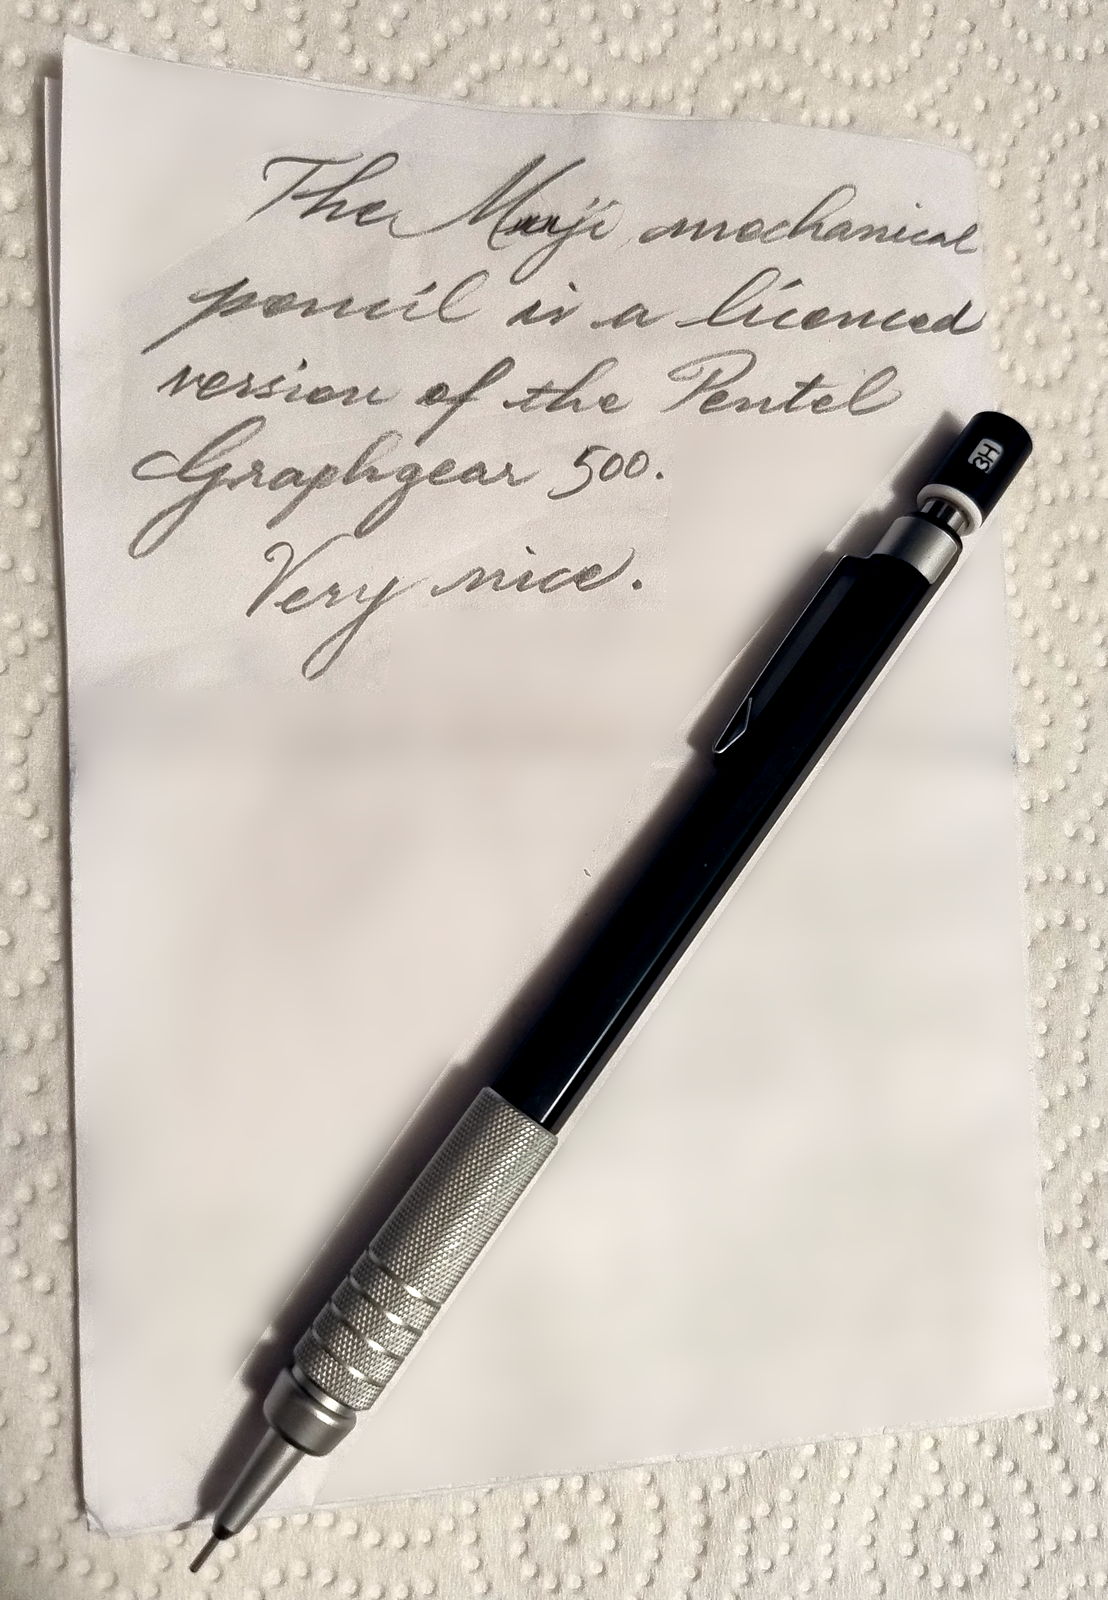 The Muji mechanical
pencil is a licenced
version of the Pentel
Graphgear 500.
Very nice.
3H